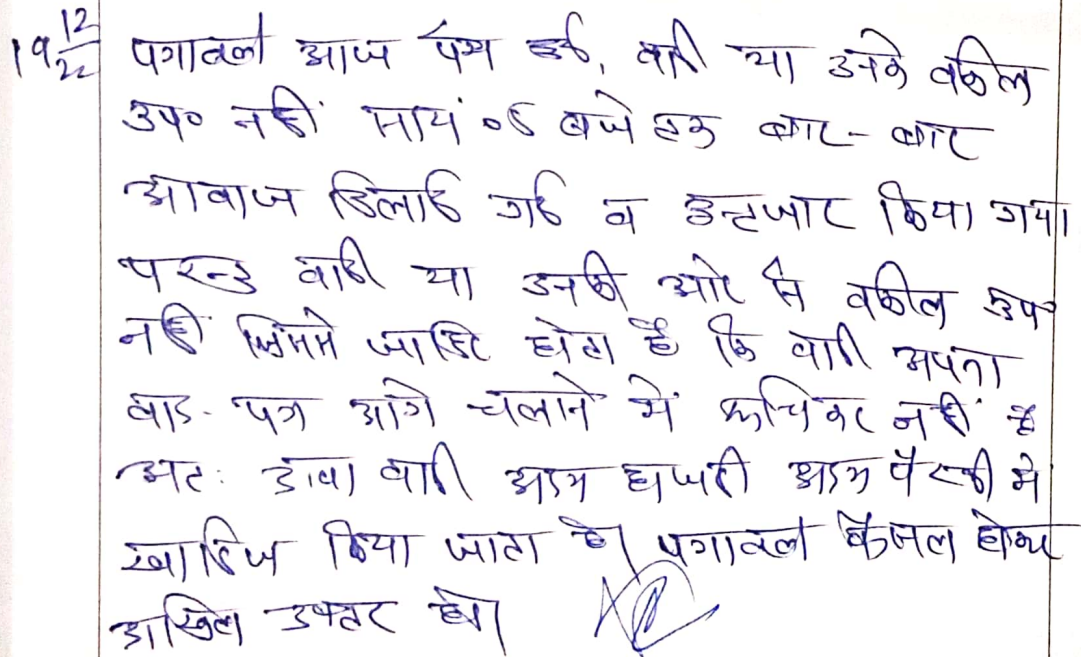 19 12/22 पत्रावली आज पेश हुई, वादी या उनके वकील
उप० नहीं सायं 05 बजे तक बार-बार
आवाज दिलाई गई व इन्तजार किया गया
परन्तु वादी या उनकी ओर से वकील उप
नहीं जिससे जाहिर होता है कि वादी अपना
वाद-पत्र आगे चलाने में रूचिकर नहीं है
अतः दावा वादी अदम हाजरी अदम पैरवी में
खारिज किया जाता है। पत्रावली फैसल होकर
दाखिल दफ्तर हो।